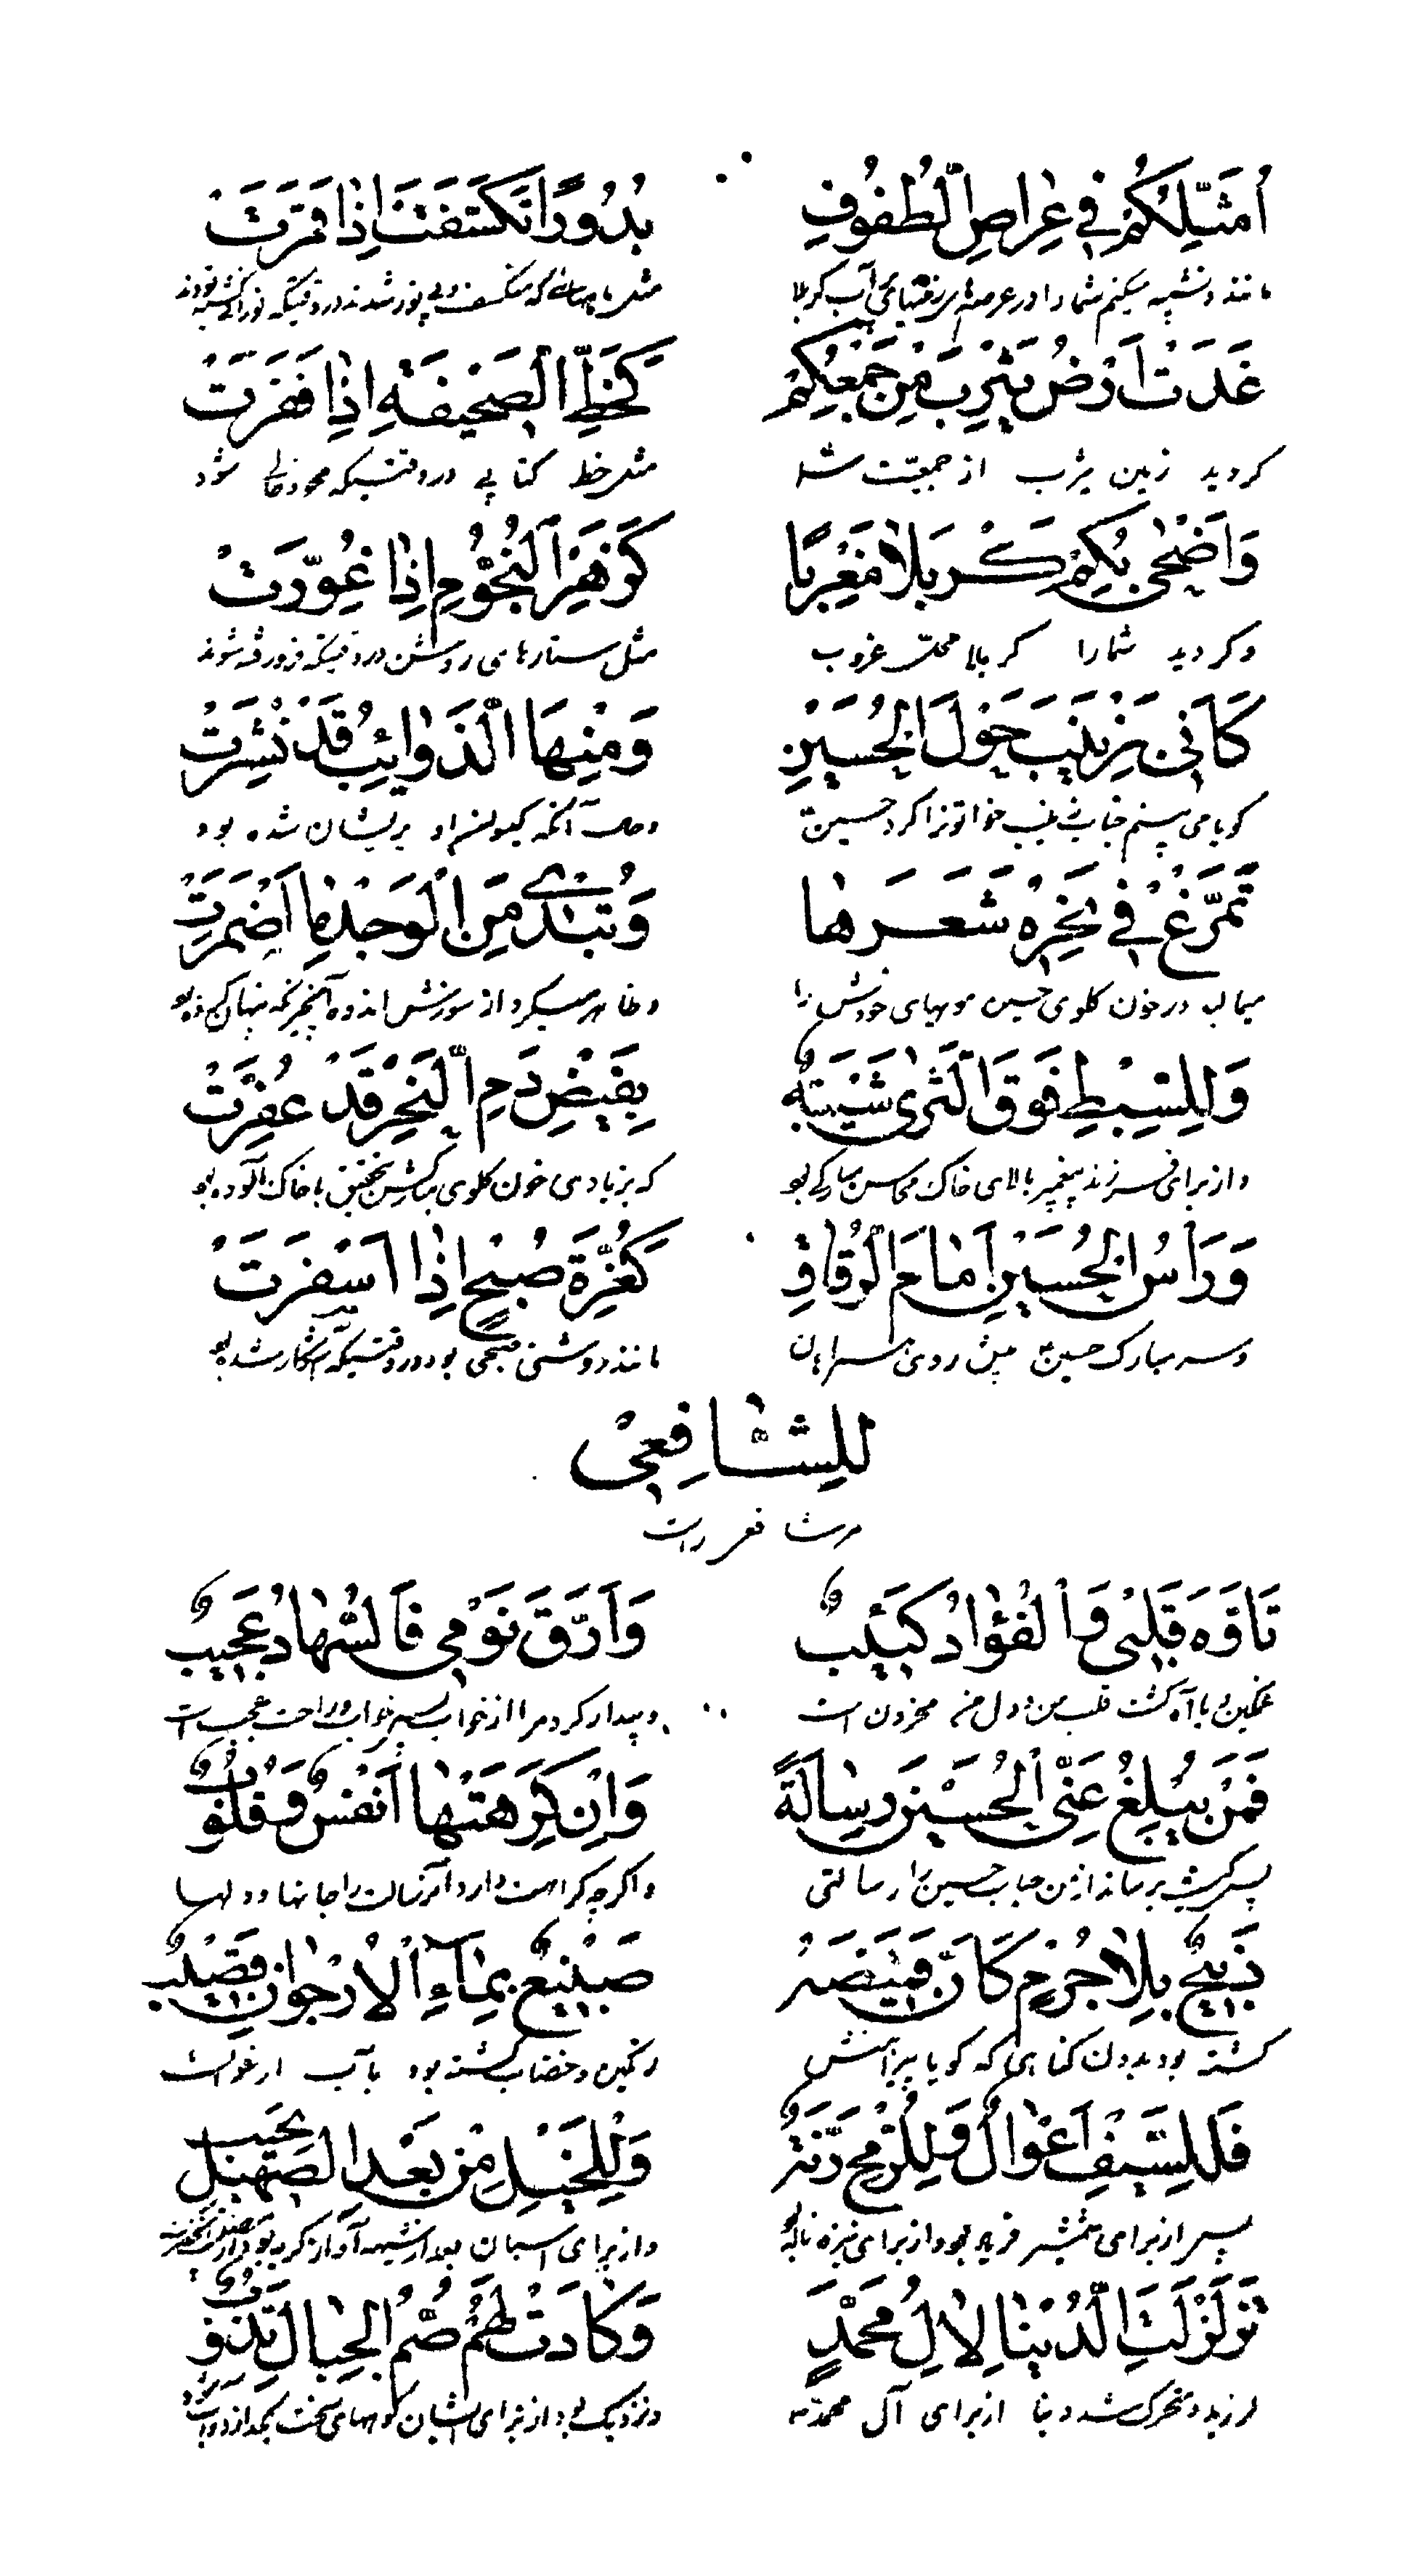 اُمَثِّلُكُمْ فِي عِرٰاصِ الطُّفُوفِ بُدُورًا تَكَسَّفَتْ اِذٰا قَمَّرَتْ
مانند و تشبیه میکنم شما را در عرصه‌های آب کربلا مثل که منکسف و بی نور شدند در وقتیکه
غَدَتْ اَرْضُ يَثْرِبَ مِنْ جَمْعِكُمْ كَخَطِّ الصَّحِيفَةِ اِذٰا قَفَرَتْ
گردید زمین یثرب از جمعیت شما مثل خط کتابی در وقتیکه محو و خالی شود
وَاَضْحٰى بِكُمْ كَرْبَلاٰ مَغْرِبًا كَزُهْرِ النُّجُومِ اِذٰا غُوِّرَتْ
و گردید شما را کربلا محل غروب مثل ستارهای روشن در وقتیکه فرو رفته شوند
كَاَنّى بِزَيْنَبَ حَوْلَ الْحُسَيْنِ وَمِنْهَا الذَّوٰائِبُ قَدْ نُشِرَتْ
گویا می بینم جناب زینب خواتون را گرد حسین و حال آنکه گیسوان او پریشان شده بود
تُمَرِّغُ فِي نَحْرِهِ شَعْرَهٰا وَتُبْدِى مِنَ الْوَجْدِ مٰا اَضْمَرَتْ
میمالید در خون گلوی حسین مویهای خودش را و ظاهر میکرد از سوزش اندوه آنچیزیکه پنهان کرده بود
وَلِلسِّبْطِ فَوْقَ الثَّرٰى شَيْبَةٌ بِفَيْضِ دَمِ النَّحْرِ قَدْ عُفِّرَتْ
و از برای فرزند پیغمبر بالای خاک محاسن مبارکی بود که بزیادی خون گلوی با خاک آلوده بود
وَرَأْسُ الْحُسَيْنِ اَمٰامَ الرِّفٰاقِ كَغُرَّةِ صُبْحٍ اِذٰا اَسْفَرَتْ
و سر مبارک حسین پیش روی مانند روشنی صبحی بود در وقتیکه آشکار شده بود
لِلشّٰافِعِىْ
مر شافعی راست
تَاَوَّهَ قَلْبِى وَالْفُؤٰادُ كَئِيبُ وَاَرَّقَ نَوْمِى فَالسُّهٰادُ عَجِيبُ
غمگین با آه گشت قلب من و دل من محزون است و بیدار کرد مرا از خواب
فَمَنْ يُبْلِغُ عَنِّى الْحُسَيْنَ رِسٰالَةً وَاِنْ كَرِهَتْهٰا اَنْفُسٌ وَقُلُوبُ
پس کیست برساند از من جناب حسین را رسالتی و اگر چه کراهت دارد آن رسالت را جانها و دلها
ذَبِيحٌ بِلاٰ جُرْمٍ كَاَنَّ قَمِيصَهُ صَبِيغٌ بِمٰاءِ الْاُرْجُوٰانِ خَضِيبُ
کشته بود بدون گناهی که گویا پیراهنش رنگین و خضاب گشته بود بآب ارغوان
فَلِلسَّيْفِ اِعْوٰالٌ وَلِلرُّمْحِ رَنَّةٌ وَلِلْخَيْلِ مِنْ بَعْدِ الصَّهِيلِ نَحِيبُ
پس از برای شمشیر فریاد بود و از برای نیزه ناله بود و از برای اسبان بعد از شیهه آواز گریه بود
تَزَلْزَلَتِ الدُّنْيٰا لِاٰلِ مُحَمَّدٍ وَكٰادَتْ لَهُمْ صُمُّ الْجِبٰالِ تَذُوبُ
لرزید و متحرک شد دنیا از برای آل محمد و نزدیک بود از برای ایشان کوههای سخت